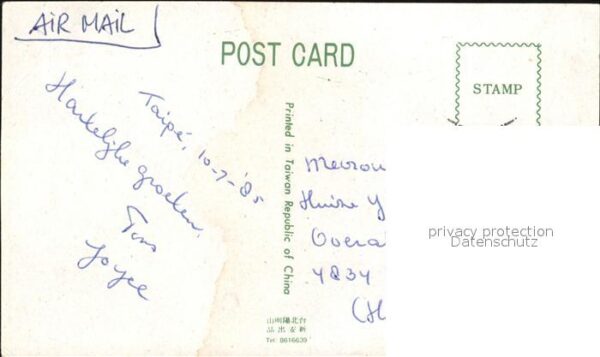 AIR MAIL
POST CARD
STAMP
Taipé, 10-7-'85
Hartelijke groeten.
Ton
Joyce
Printed in Taiwan Republic of China
Mevrou
Huize Y
Overa
4834
(H
privacy protection
Datenschutz
山明陽北台
品出友新
Tel: 8616639